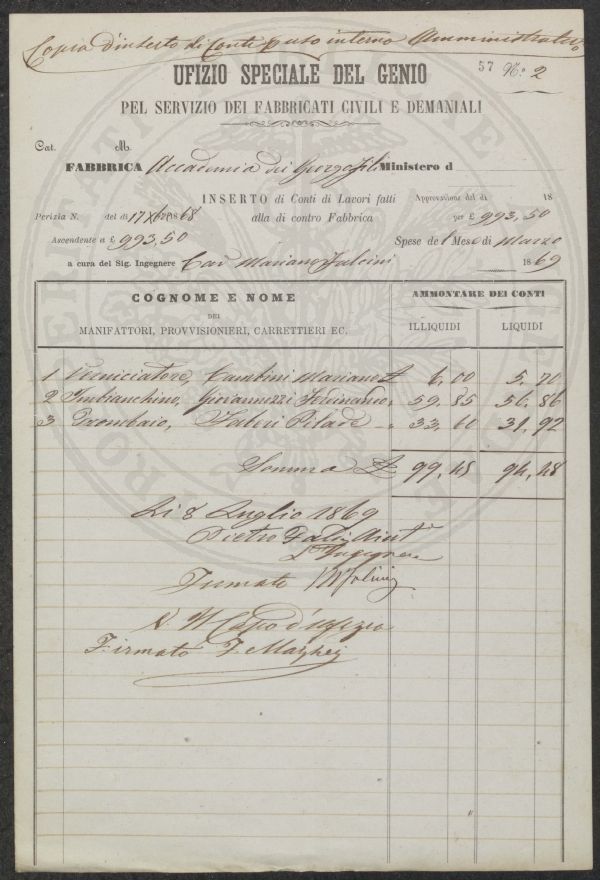 Copia d'inserto di Conti p uso interno Amministrativo
UFIZIO SPECIALE DEL GENIO
57 N.° 2
PEL SERVIZIO DEI FABBRICATI CIVILI E DEMANIALI
Cat. M.
FABBRICA Accademia dei Georgofili Ministero d
INSERTO di Conti di Lavori fatti Approvazione del dì 18
Perizia N. del dì 17 Xbre 1868 alla di contro Fabbrica per £ 993,50
Ascendente a £ 993,50 Spese del Mese di Marzo
a cura del Sig. Ingegnere Cav Mariano Falcini 1869
COGNOME E NOME AMMONTARE DEI CONTI
DEI
MANIFATTORI, PROVVISIONIERI, CARRETTIERI EC. ILLIQUIDI LIQUIDI
1 Verniciatore, Cambini Mariano £ 6,00 5,70
2 Imbianchino, Giovannozzi Ferdinando " 59,85 56,86
3 Trombaio, Faberi Pilade " 33,60 31,92
Somma £ 99,45 94,48
Li 8 Luglio 1869
Pietro Aiut
L'Ingegnere
Firmato M Falcini
V. Il Capo d'Ufizio
Firmato F. Mazzei